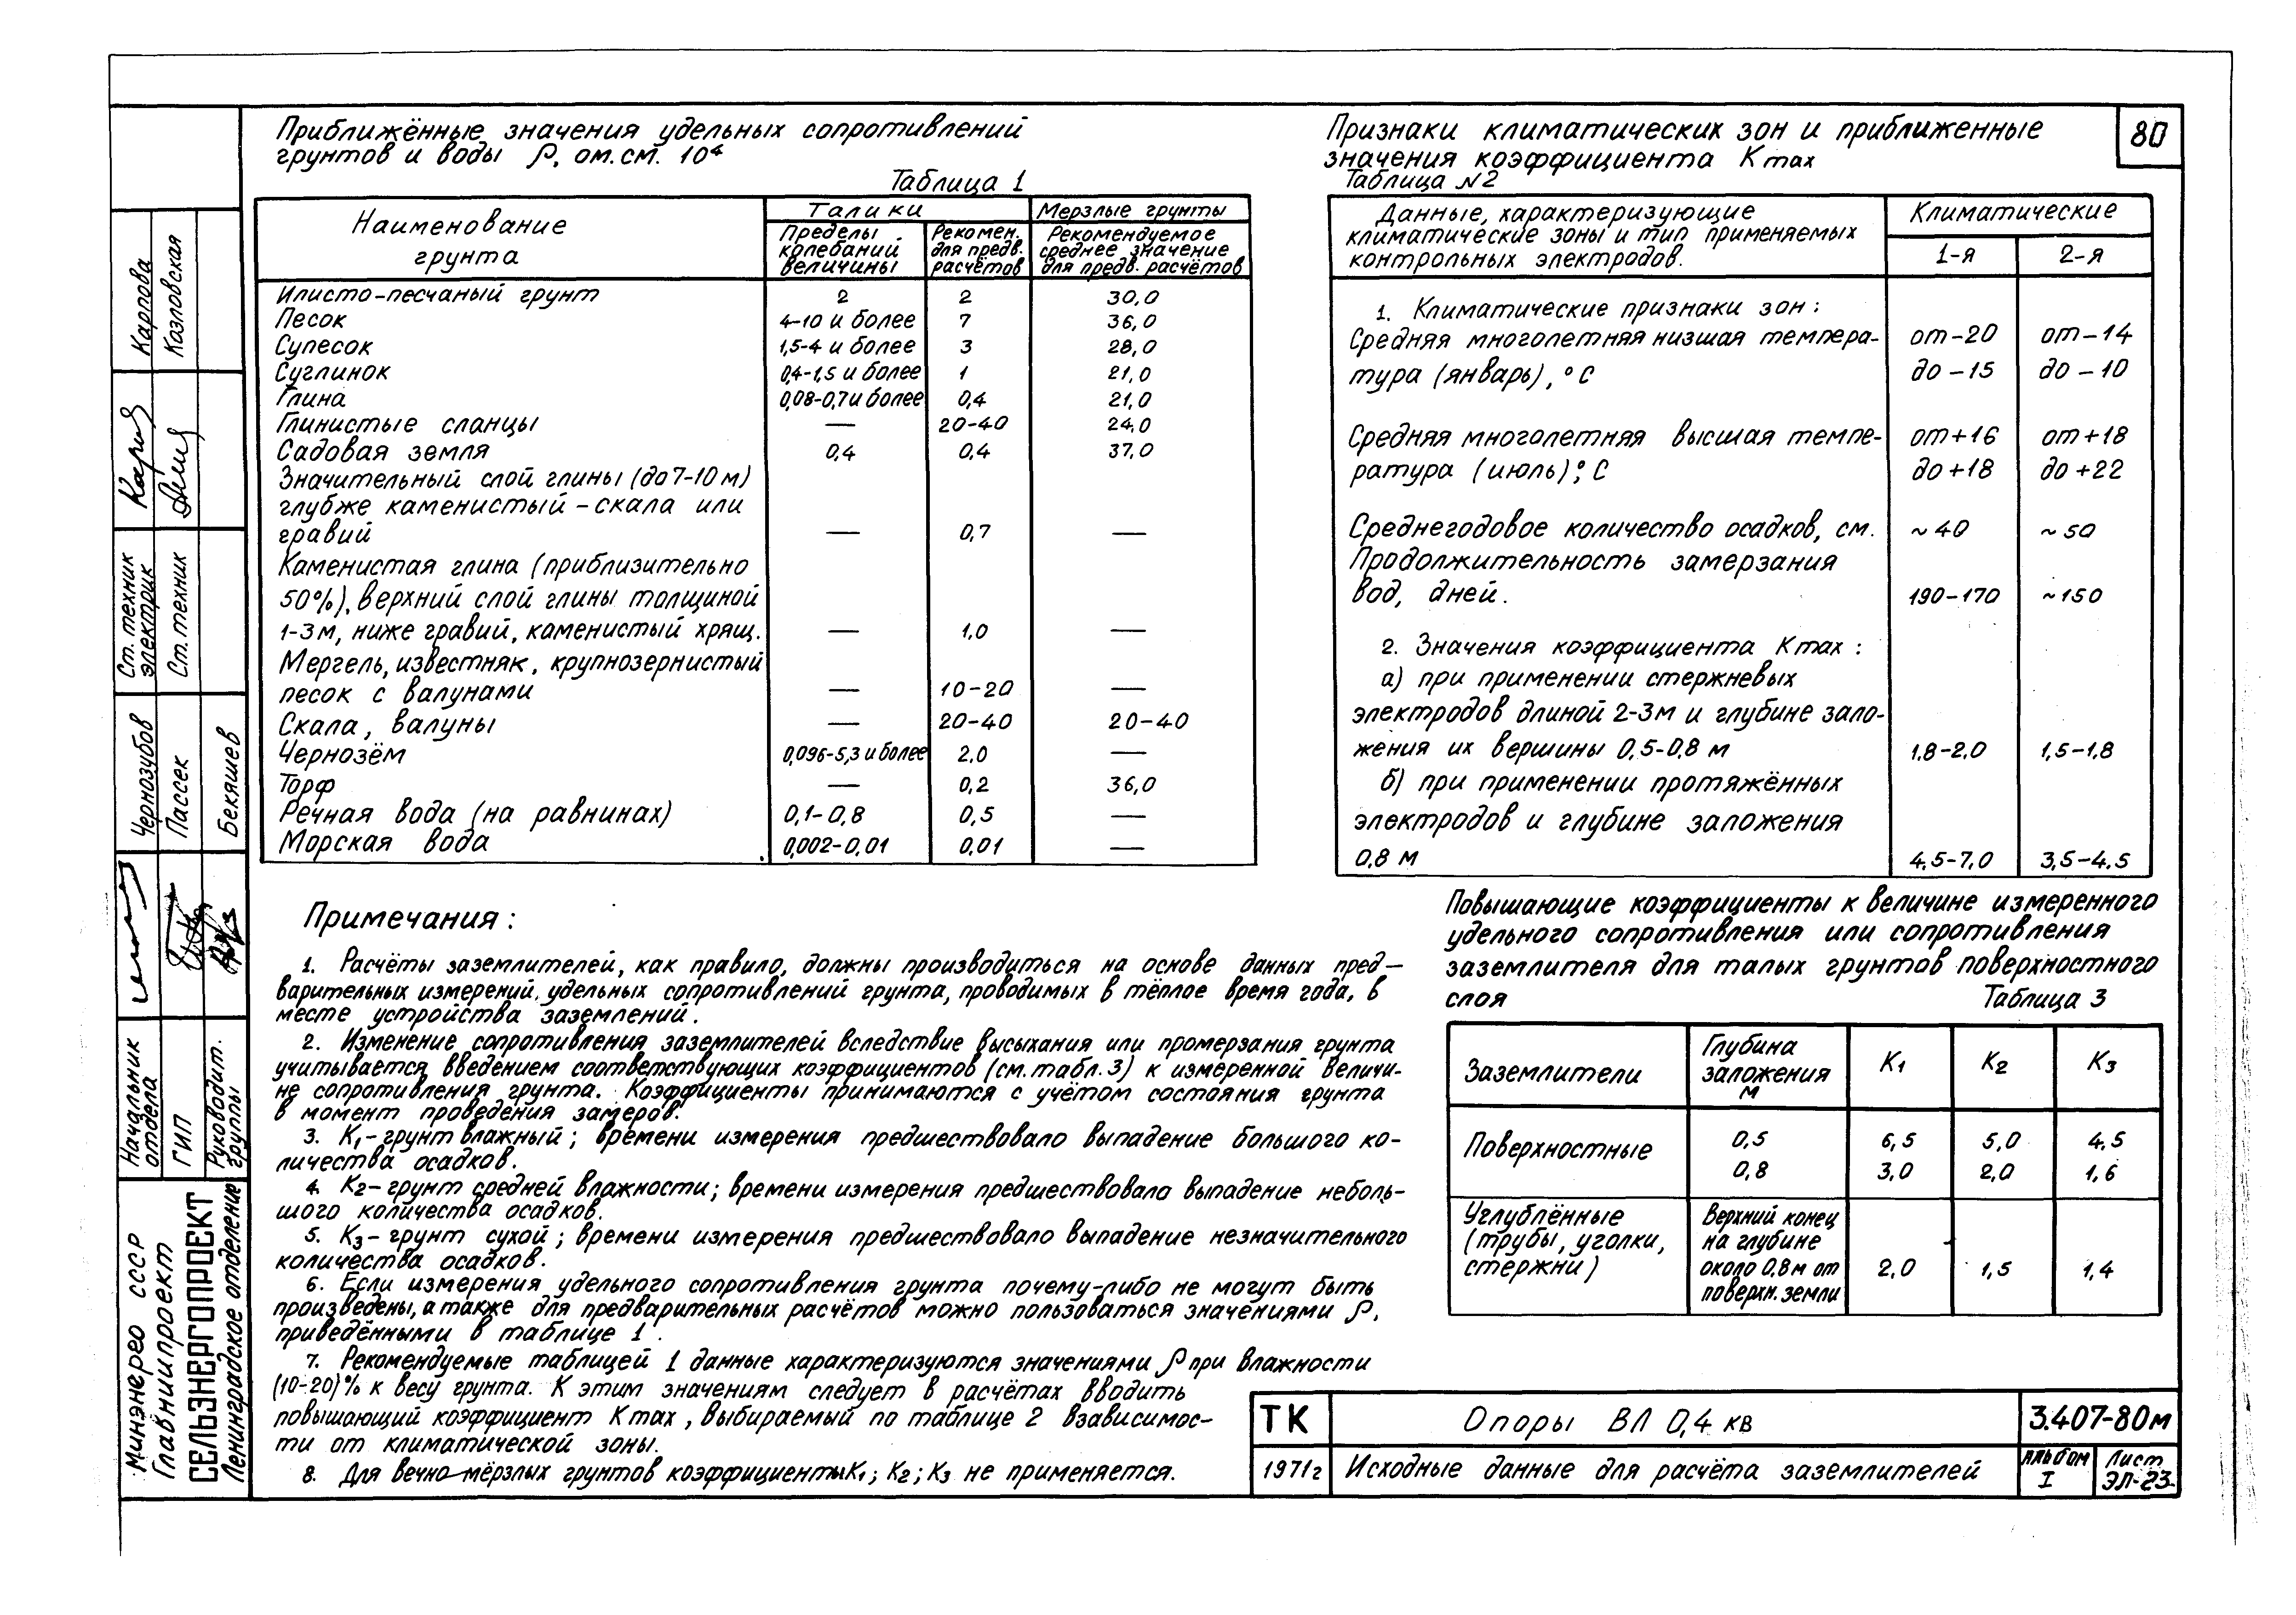 80
Приближённые значения удельных сопротивлений
грунтов и воды ρ, ом.см. 10⁴
Таблица 1
Наименование грунта | Талики | Мерзлые грунты
Пределы колебаний величины | Рекомен. для предв. расчётов | Рекомендуемое среднее значение для предв. расчётов
Илисто-песчаный грунт 2 2 30,0
Песок 4-10 и более 7 36,0
Супесок 1,5-4 и более 3 28,0
Суглинок 0,4-1,5 и более 1 21,0
Глина 0,08-0,7 и более 0,4 21,0
Глинистые сланцы — 20-40 24,0
Садовая земля 0,4 0,4 37,0
Значительный слой глины (до 7-10 м)
глубже каменистый - скала или
гравий — 0,7 —
Каменистая глина (приблизительно
50%), верхний слой глины толщиной
1-3м, ниже гравий, каменистый хрящ. — 1,0 —
Мергель, известняк, крупнозернистый
песок с валунами — 10-20 —
Скала, валуны — 20-40 20-40
Чернозём 0,096-5,3 и более 2,0 —
Торф — 0,2 36,0
Речная вода (на равнинах) 0,1-0,8 0,5 —
Морская вода 0,002-0,01 0,01 —
Признаки климатических зон и приближенные
значения коэффициента К max
Таблица №2
Данные, характеризующие
климатические зоны и тип применяемых
контрольных электродов.
Климатические
1-я 2-я
1. Климатические признаки зон:
Средняя многолетняя низшая темпера- от-20 от-14
тура (январь), °С до-15 до-10
Средняя многолетняя высшая темпе- от+16 от+18
ратура (июль),°С до+18 до+22
Среднегодовое количество осадков, см. ~40 ~50
Продолжительность замерзания
вод, дней. 190-170 ~150
2. Значения коэффициента К max:
а) при применении стержневых
электродов длиной 2-3м и глубине зало-
жения их вершины 0,5-0,8 м 1,8-2,0 1,5-1,8
б) при применении протяжённых
электродов и глубине заложения
0,8 м 4,5-7,0 3,5-4,5
Примечания:
1. Расчёты заземлителей, как правило, должны производиться на основе данных пред-
варительных измерений, удельных сопротивлений грунта, проводимых в тёплое время года, в
месте устройства заземлений.
2. Изменение сопротивления заземлителей вследствие высыхания или промерзания грунта
учитывается введением соответствующих коэффициентов (см. табл. 3) к измеренной величи-
не сопротивления грунта. Коэффициенты принимаются с учётом состояния грунта
в момент проведения замеров.
3. К₁ - грунт влажный; времени измерения предшествовало выпадение большого ко-
личества осадков.
4. К₂ - грунт средней влажности; времени измерения предшествовала выпадение неболь-
шого количества осадков.
5. К₃ - грунт сухой; времени измерения предшествовало выпадение незначительного
количества осадков.
6. Если измерения удельного сопротивления грунта почему-либо не могут быть
произведены, а также для предварительных расчётов можно пользоваться значениями ρ,
приведёнными в таблице 1.
7. Рекомендуемые таблицей 1 данные характеризуются значениями ρ при влажности
(10-20)% к весу грунта. К этим значениям следует в расчётах вводить
повышающий коэффициент К max, выбираемый по таблице 2 взависимос-
ти от климатической зоны.
8. Для вечно-мёрзлых грунтов коэффициенты К₁; К₂; К₃ не применяется.
Повышающие коэффициенты к величине измеренного
удельного сопротивления или сопротивления
заземлителя для талых грунтов поверхностного
слоя Таблица 3
Заземлители | Глубина заложения м | К₁ | К₂ | К₃
Поверхностные 0,5 6,5 5,0 4,5
0,8 3,0 2,0 1,6
Углублённые (трубы, уголки, стержни) | Верхний конец на глубине около 0,8 м от поверхн. земли | 2,0 | 1,5 | 1,4
ТК Опоры ВЛ 0,4 кв 3.407-80м
1971г Исходные данные для расчёта заземлителей Альбом I Лист ЭЛ-23
Карпова
Козловская
Ст. техник электрик
Ст. техник
Чернозубов
Пассек
Бекяшев
Начальник отдела
ГИП
Руководит. группы
Минэнерго СССР
Главниипроект
СЕЛЬЭНЕРГОПРОЕКТ
Ленинградское отделение